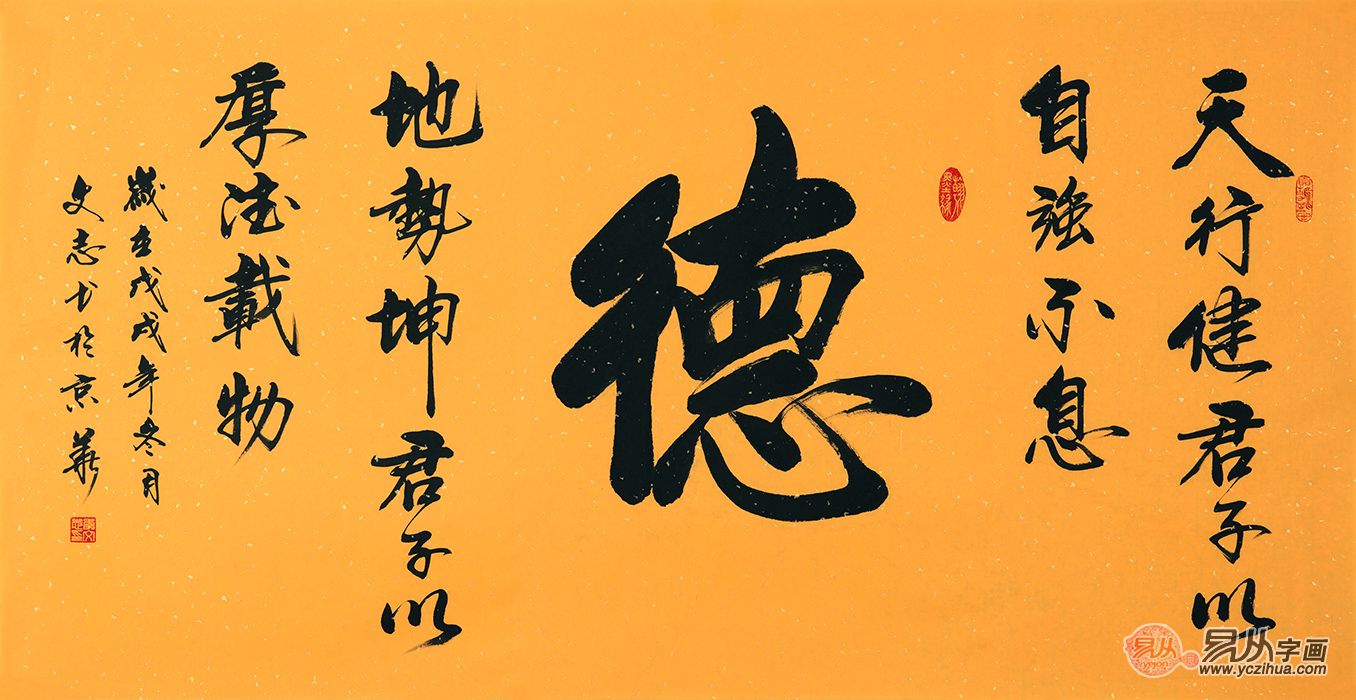 天行健君子以
自強不息
德
地勢坤君子以
厚德載物
歲在戊戌年冬月
文志書於京華
易从字画
www.yczihua.com